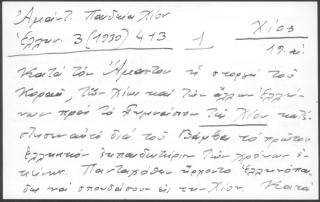 Ἀμάντ. Παιδεία Χίου Χίος
Ἑλλην. 3 (1930) 413 1 19. αἰ.
Κατὰ τὸν Ἄμαντον ἡ στοργὴ τοῦ
Κοραῆ, τῶν Χίων καὶ τῶν ἄλλων Ἑλλή-
νων πρὸς τὸ Γυμνάσιον τῆς Χίου κατέ-
στησεν αὐτὸ διὰ τοῦ Βάμβα τὸ πρῶτον
Ἑλληνικὸ ἐκπαιδευτήριον τῶν χρόνων ἐ-
κείνων. Πανταχόθεν ἤρχοντο Ἑλληνόπαι-
δες νὰ σπουδάσουν εἰς τὴν Χίον. Κατὰ